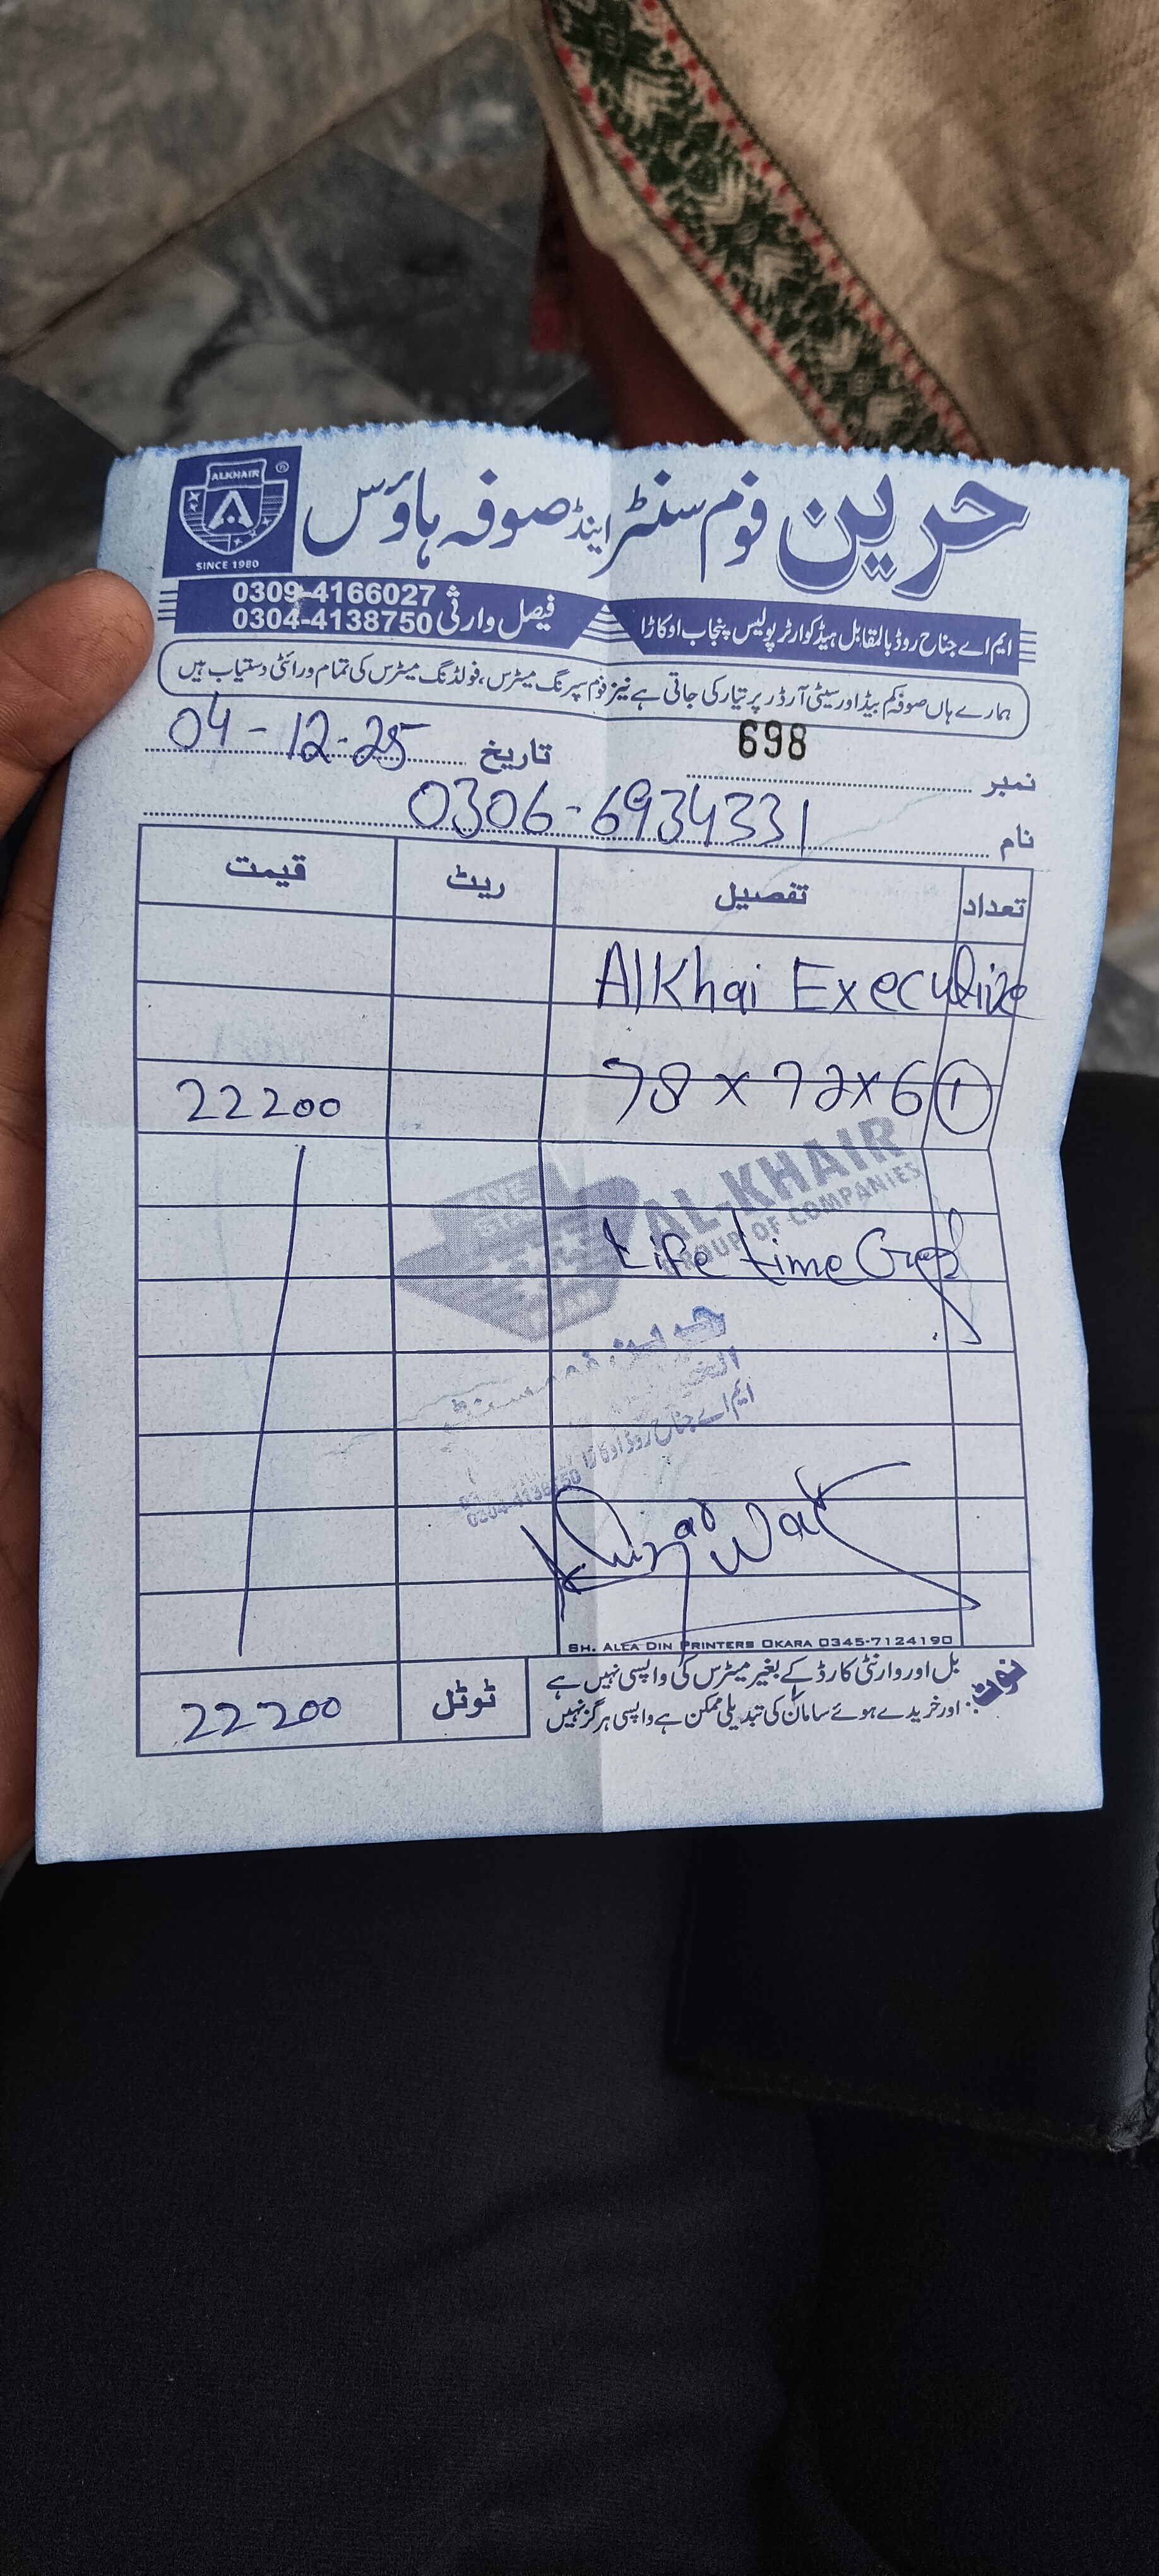 ALKHAIR
SINCE 1980
حرین فوم سنٹر اینڈ صوفہ ہاؤس
ایم اے جناح روڈ بالمقابل ہیڈ کوارٹر پولیس پنجاب اوکاڑا
فیصل وارثی
0309-4166027
0304-4138750
ہمارے ہاں صوفہ کم بیڈ اور سیٹی آرڈر پر تیار کی جاتی ہے نیز فوم سپرنگ میٹرس، فولڈنگ میٹرس کی تمام ورائٹی دستیاب ہیں
نمبر 698
تاریخ 04-12-25
نام 0306-6934331
تعداد تفصیل ریٹ قیمت
Alkhai Executive
78 x 72 x 6 1 22200
AL-KHAIR
GROUP OF COMPANIES
Life time
ایم اے جناح روڈ اوکاڑا
SH. ALLA DIN PRINTERS OKARA 0345-7124190
نوٹ: بل اور وارنٹی کارڈ کے بغیر میٹرس کی واپسی نہیں ہے
اور خریدے ہوئے سامان کی تبدیلی ممکن ہے واپسی ہرگز نہیں
ٹوٹل 22200